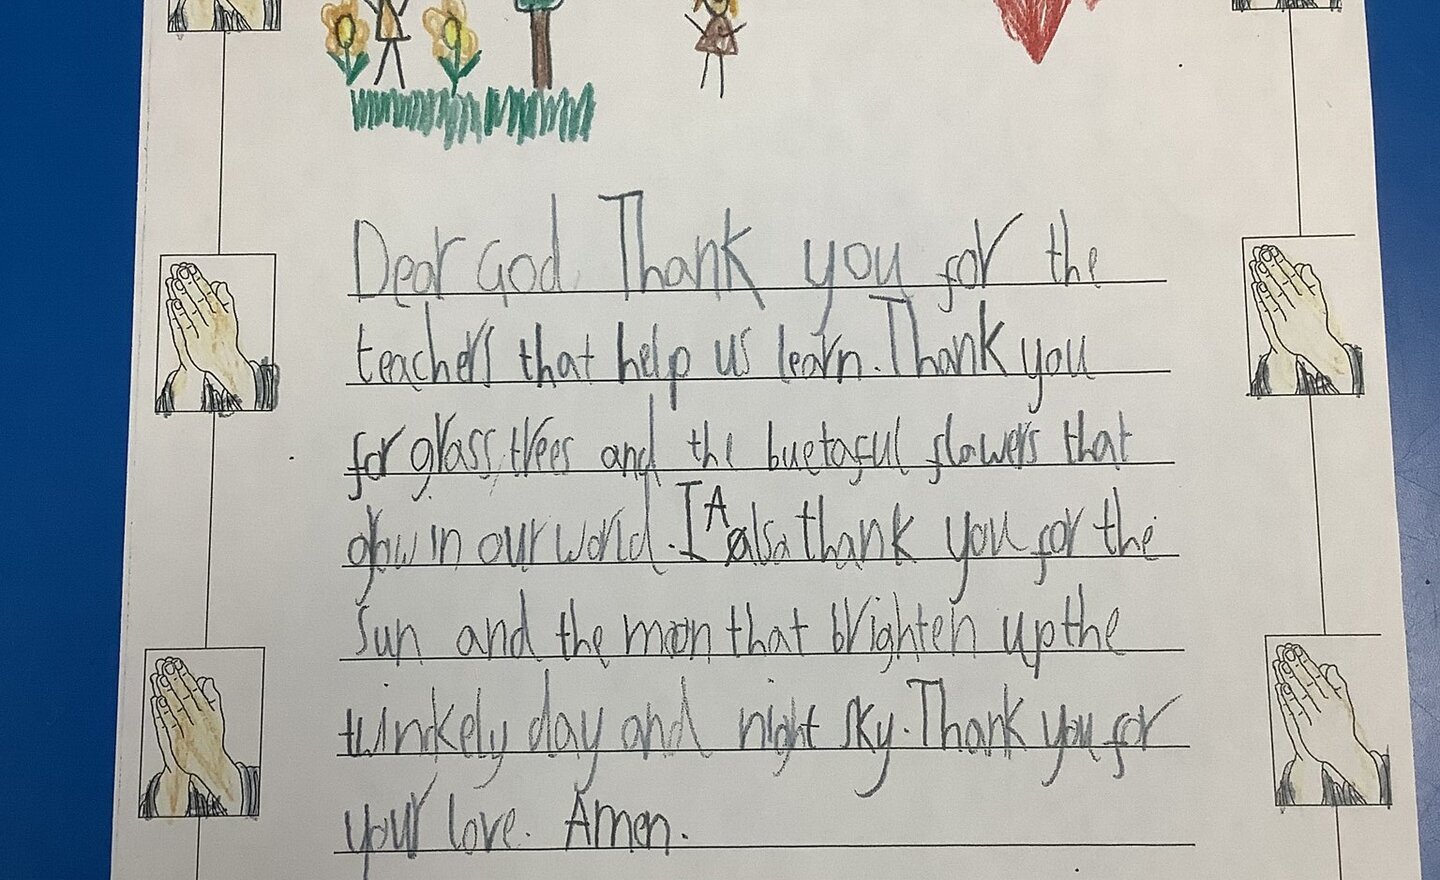 Dear God Thank you for the
teachers that help us learn. Thank you
for grass, trees and the buetaful flowers that
grow in our world. I also thank you for the
sun and the moon that brighten up the
twinkely day and night sky. Thank you for
your love. Amen.